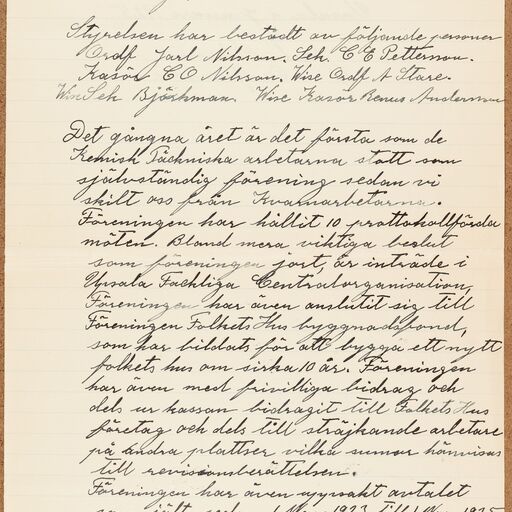 Styrelsen har bestådt av följande personer
Ordf Jarl Nilsson. Sek. C E Petterson.
Kasör C O Nilsson. Wise Ordf A Stare.
Wise Sek Björkman. Wise Kasör Renus Anderson
Det gångna året är det första som de
Kemisk Täckniska arbetarna stått som
självständig förening sedan vi
skilt oss från Kvarnarbetarna.
Föreningen har hållit 10 prottokollförda
möten. Bland mera viktiga beslut
som föreningen jort, är inträde i
Upsala Fachliga Centralorganisation,
Föreningen har även anslutit sig till
Föreningen Folkets Hus byggnadsfond,
som har bildats för att bygga ett nytt
folkets hus om sirka 10 år. Föreningen
har även med frivilliga bidrag och
dels ur kassan bidragit till Folkets Hus
företag och dels till sträjkande arbetare
på andra plattser vilka sumor hänvisas
till revisionsberättelsen.
Föreningen har även uppsakt avtalet